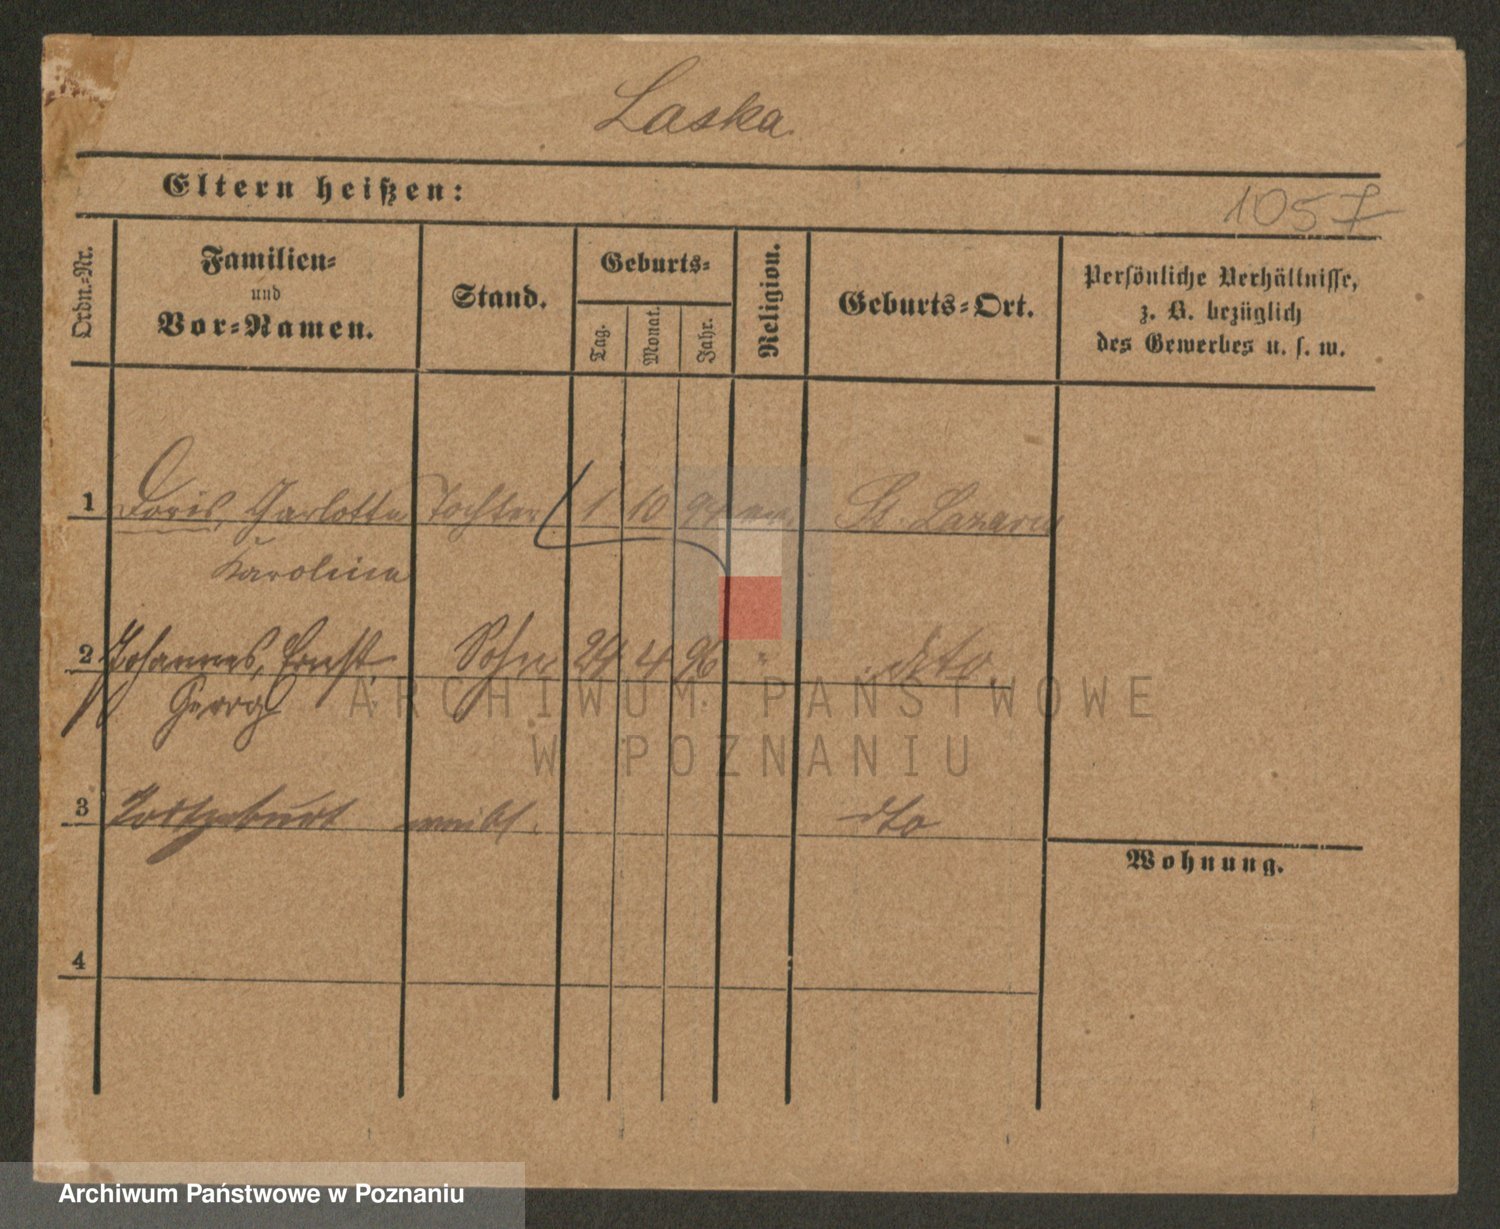 Laska
Eltern heißen:
1057
Ordn.-Nr.
Familien-
und
Vor-Namen.
Stand.
Geburts-
Tag.
Monat.
Jahr.
Religion.
Geburts-Ort.
Persönliche Verhältnisse,
z. B. bezüglich
des Gewerbes u. s. w.
1 Doris, Charlotte Tochter 1 10 94 ev. St. Lazarus
Karoline
2 Johannes, Ernst, Sohn 24 4 96 " dto
Georg
3 Todtgeburt weibl. dto
Wohnung.
4
ARCHIWUM PAŃSTWOWE
W POZNANIU
Archiwum Państwowe w Poznaniu